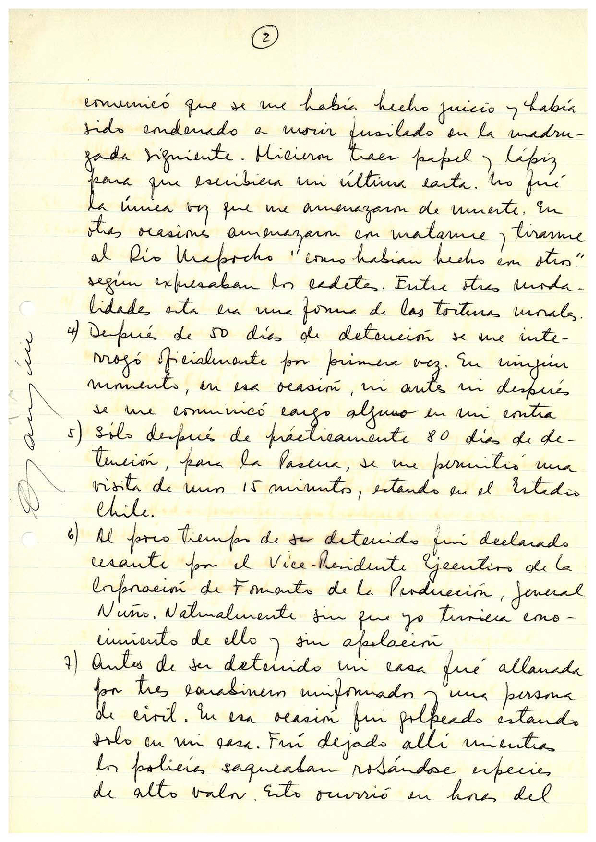 2
comunicó que se me había hecho juicio y había
sido condenado a morir fusilado en la madru-
gada siguiente. Hicieron traer papel y lápiz
para que escribiera mi última carta. No fué
la única vez que me amenazaron de muerte. En
otras ocasiones amenazaron con matarme y tirarme
al Río Mapocho "como habian hecho con otros"
según expresaban los cadetes. Entre otras moda-
lidades esta era una forma de las torturas morales.
4) Después de 50 días de detención se me inte-
rrogó oficialmente por primera vez. En ningún
momento, en esa ocasión, ni antes ni después
se me comunicó cargo alguno en mi contra
5) Sólo después de prácticamente 80 días de de-
tención, para la Pascua, se me permitió una
visita de unos 15 minutos, estando en el Estadio
Chile.
6) Al poco tiempo de ser detenido fuí declarado
cesante por el Vice-Presidente Ejecutivo de la
Corporación de Fomento de la Producción, General
Nuño. Naturalmente sin que yo tuviera cono-
cimiento de ello y sin apelación
7) Antes de ser detenido mi casa fué allanada
por tres carabineros uniformados y una persona
de civil. En esa ocasión fuí golpeado estando
solo en mi casa. Fuí dejado allí mientras
los policías saqueaban robándose especies
de alto valor. Esto ocurrió en horas del